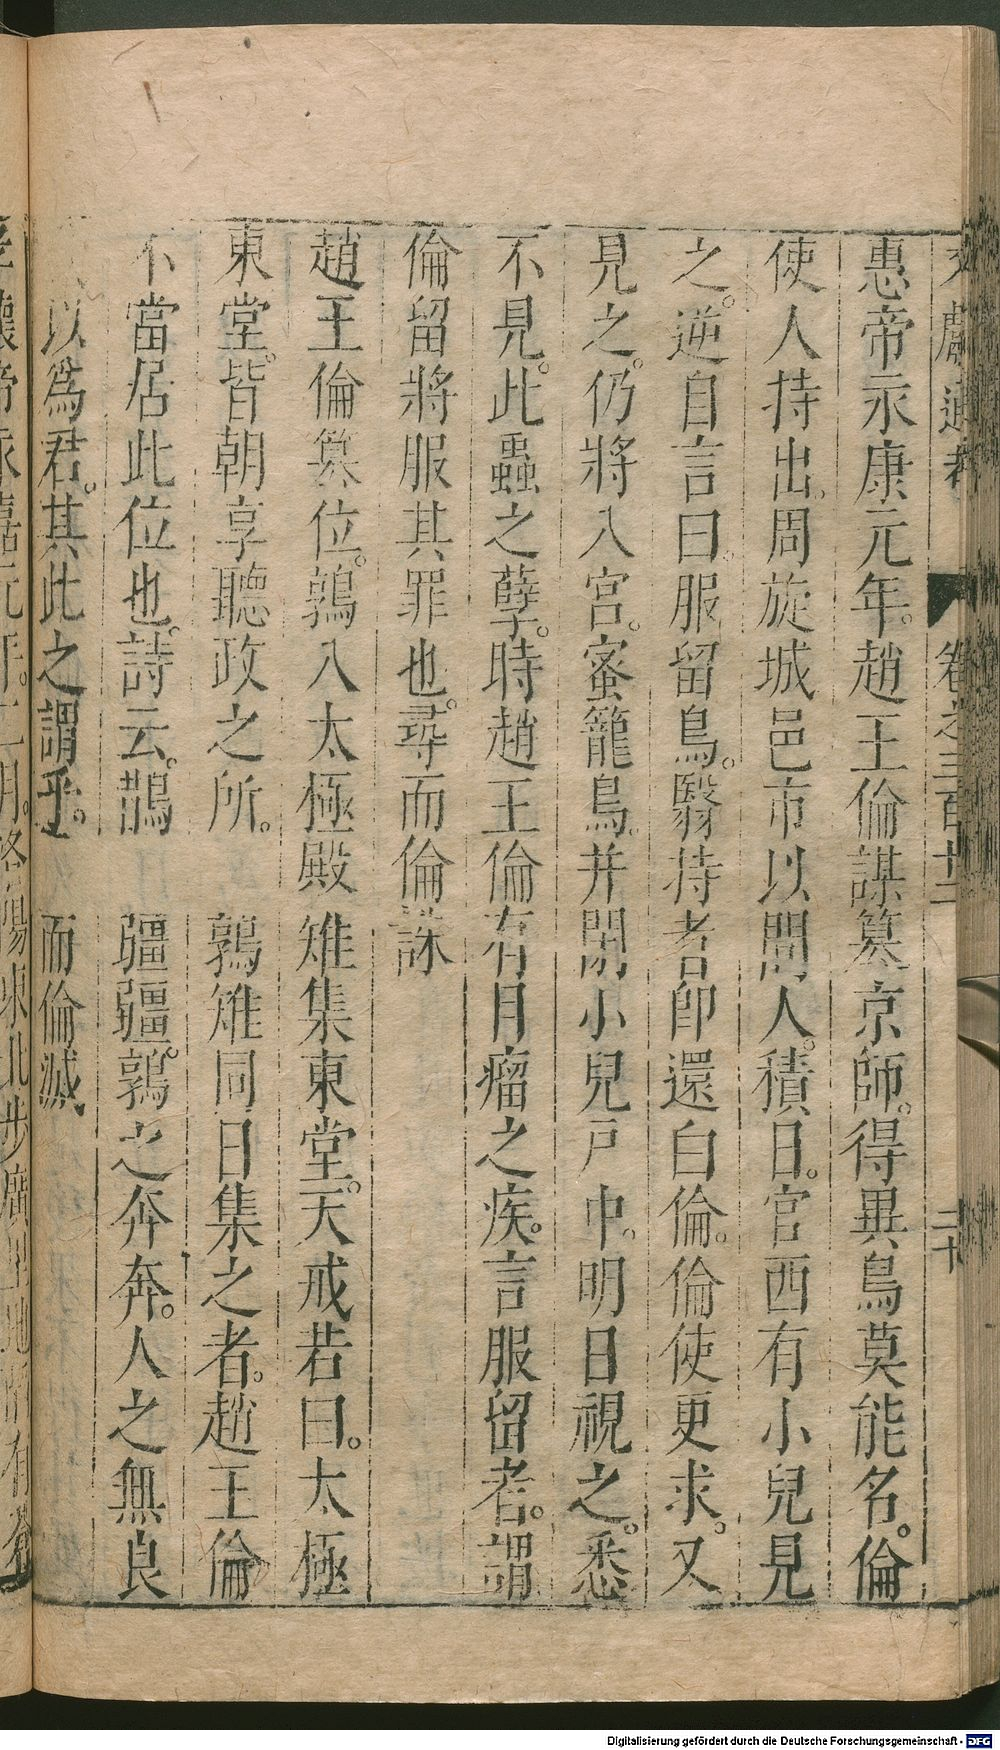 文獻通考 卷之三百十二 二十
惠帝永康元年。趙王倫謀篡京師。得異鳥莫能名。倫
使人持出。周旋城邑市以問人。積日。宮西有小兒見
之。逆自言曰。服留鳥。翳持者卽還白倫。倫使更求。又
見之。仍將入宮。蜜籠鳥。幷閉小兒戶中。明日視之。悉
不見。此蟲之孽。時趙王倫有目瘤之疾。言服留者。謂
倫留將服其罪也。尋而倫誅
趙王倫篡位。鶉入太極殿 雉集東堂。天戒若曰。太極
東堂。皆朝享聽政之所。 鶉雉同日集之者。趙王倫
不當居此位也。詩云。鵲 疆疆。鶉之奔奔。人之無良
以爲君。其此之謂乎。 而倫滅
孝懷帝永嘉元年。二月。洛陽東北步廣里地陷有蒼
Digitalisierung gefördert durch die Deutsche Forschungsgemeinschaft - DFG